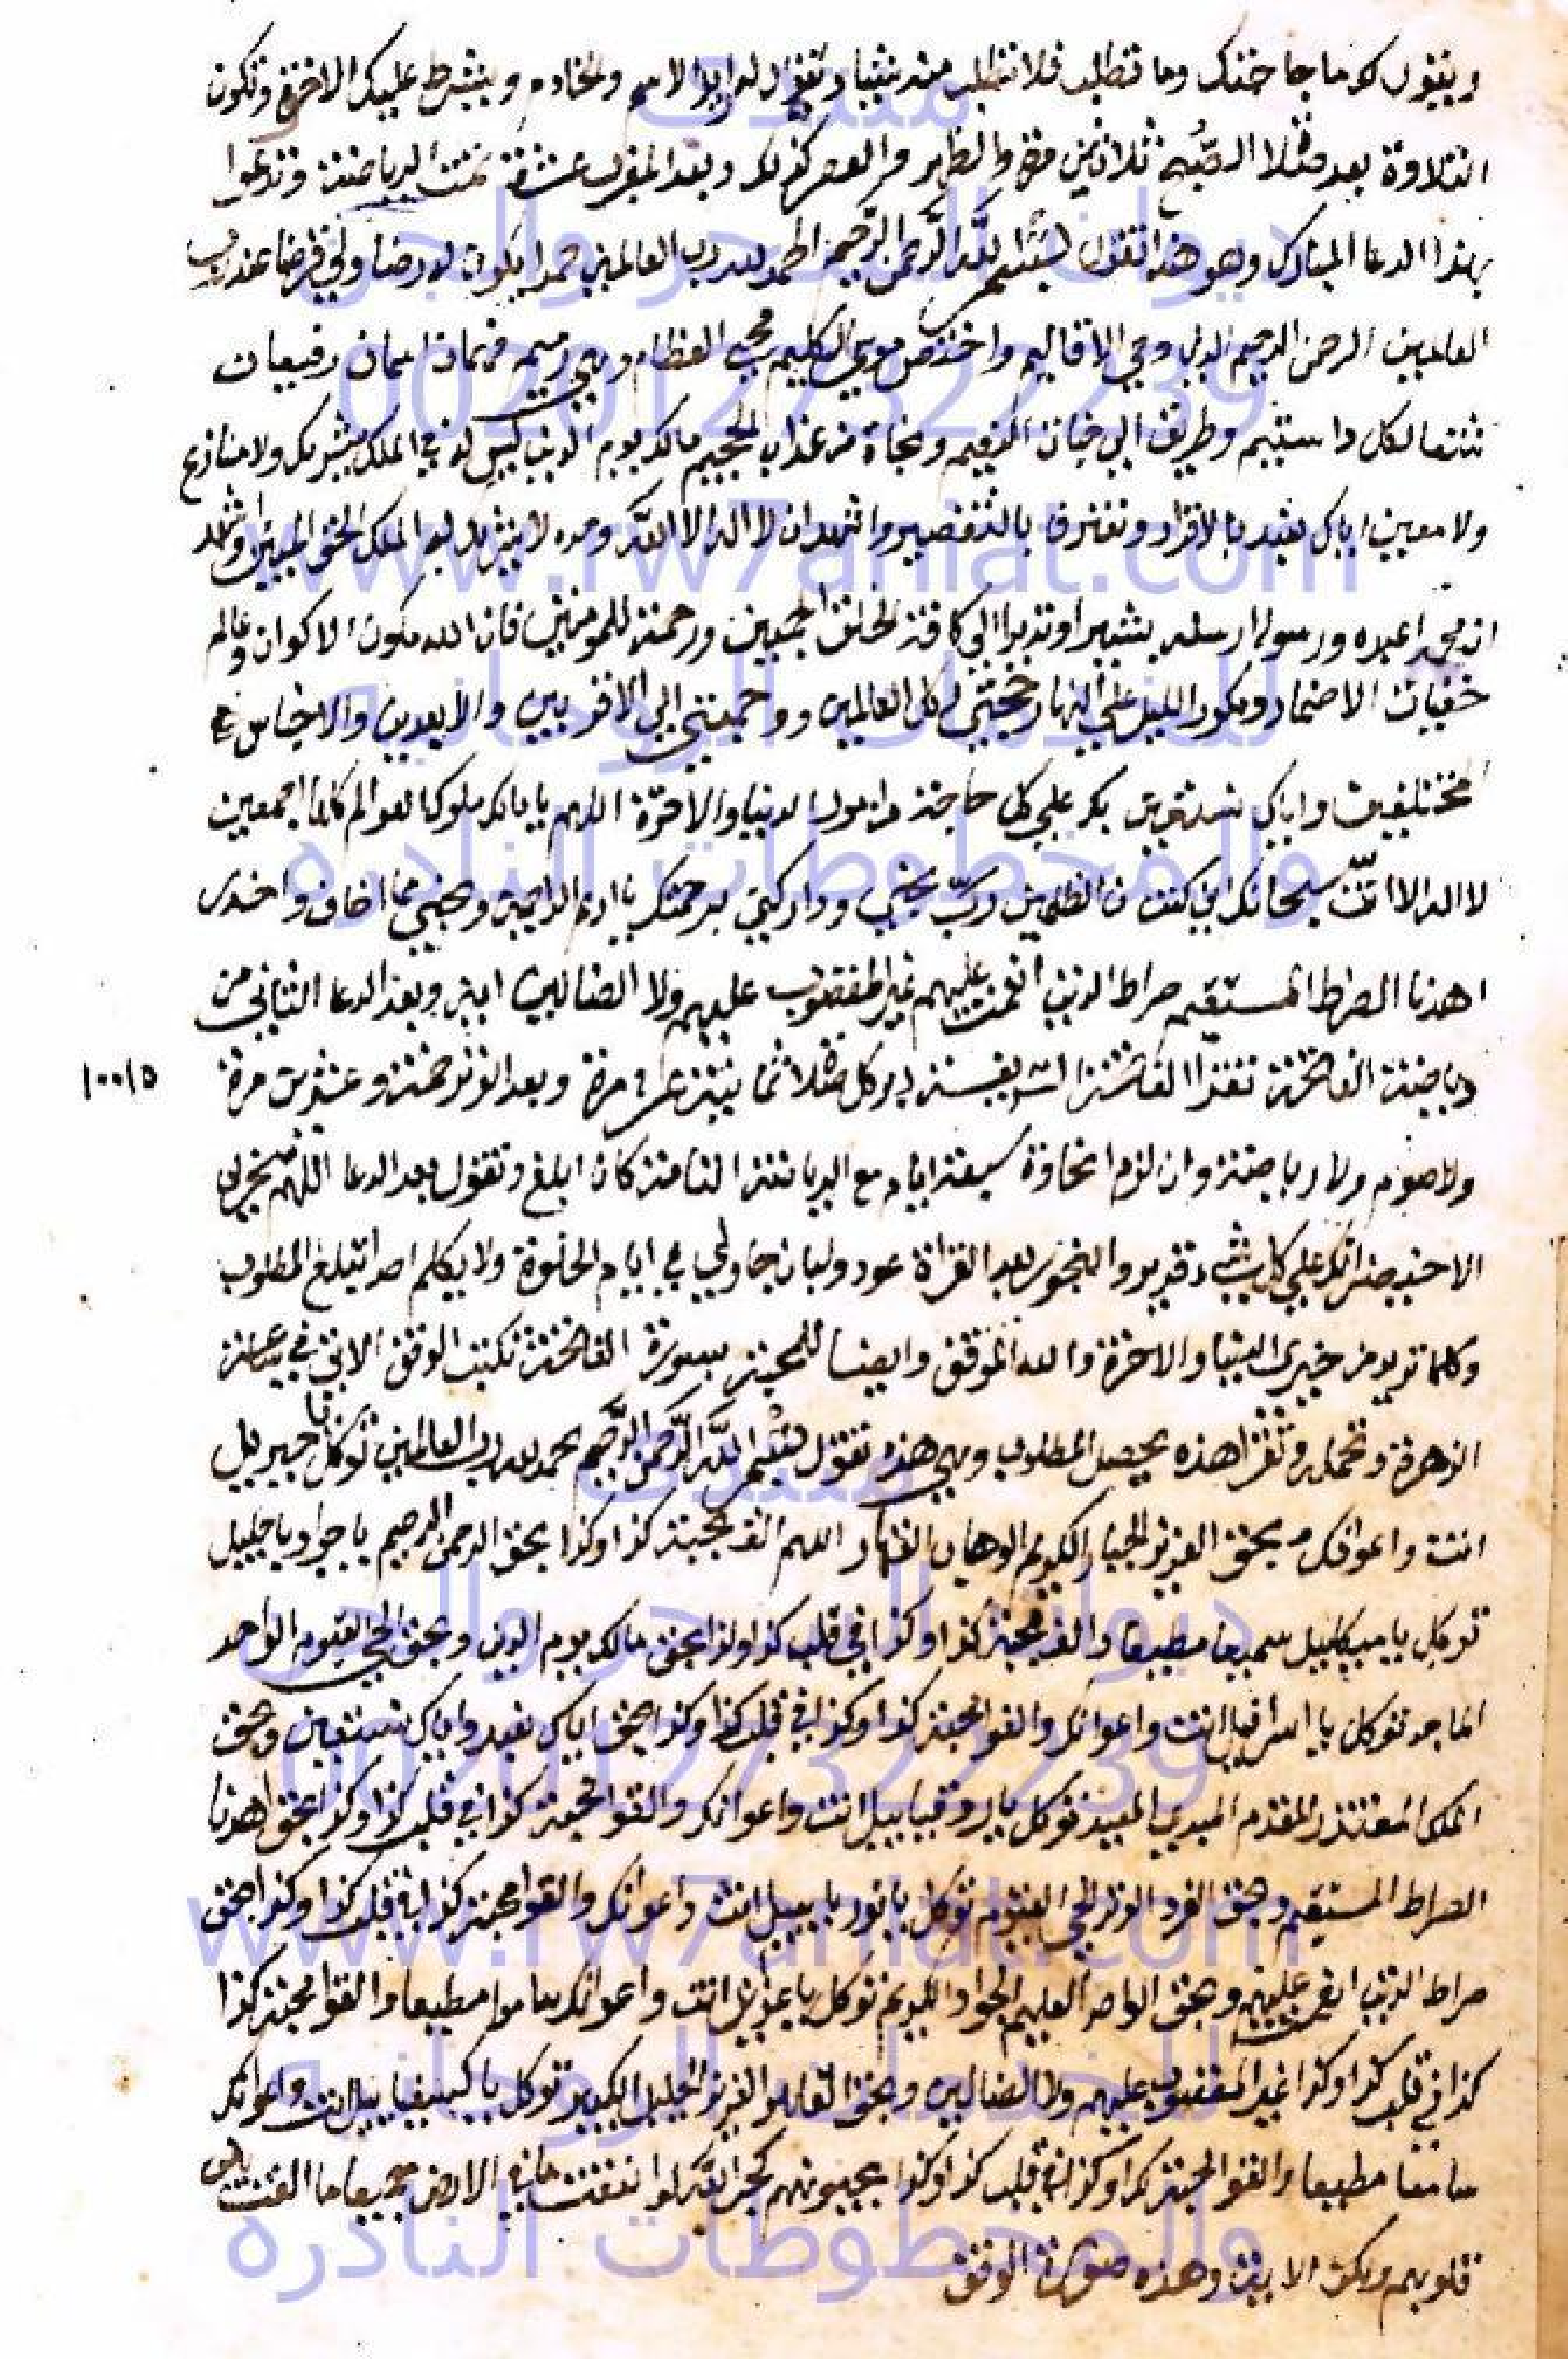 ويقول لك ما حاجتك وما تطلب فلا تطلب منه شيئا وتقول له اريد الاسم والخادم ويشرط عليك الاخوة وتكون
التلاوة بعد صلاة الصبح ثلاثين مرة والظهر والعصر كذلك وبعد المغرب عشرة تمت الرياضة وتدعوا
بهذا الدعا المبارك وهو هذا تقول بسم الله الرحمن الرحيم الحمد لله رب العالمين حمدا يكون له رضا ولي فرضا عند رب
العالمين الرحمن الرحيم واختص موسى الكليم محيي العظام وهي رميم
شفا لكل دا سقيم وطريق الي جنات النعيم ونجاة من عذاب الجحيم مالك يوم الدين ليس له في الملك شريك ولا منازع
ولا معين اياك نعبد بالاقرار ونعترف بالتقصير واشهد ان لا اله الا الله وحده لا شريك له الملك الحق المبين واشهد
ان محمدا عبده ورسوله ارسله بشيرا ونذيرا الي كافة الخلق اجمعين ورحمة للمومنين فان الله مكون الاكوان وعالم
خفيات الاضمار ومكور الليل علي النهار العالمين الي الاقربين والابعدين والاجناس
المختلفين واياك نستعين بك علي كل حاجة من امور الدنيا والاخرة اللهم يا مالك ملوك العوالم كلها اجمعين
لا اله الا انت سبحانك اني كنت من الظلمين رب نجني وداركني برحمتك يا ارحم الراحمين ونجني مما اخاف واحذر
اهدنا الصراط المستقيم صراط الذين انعمت عليهم غير المغضوب عليهم ولا الضالين امين وبعد الدعا الثاني من
رياضة الفاتحة تقرا الفاتحة الشريفة دبر كل صلاة ثمانية عشر مرة وبعد الوتر خمسة وعشرين مرة
١٠٠١٥
ولا صوم ولا رياضة وان لزم الخلوة سبعة ايام مع الرياضة التامة كان ابلغ وتقول بعد الدعا اللهم سخر لي
انك علي كل شيء قدير والبخور بعد القراة عود ولبان جاولي في ايام الخلوة ولا يكلم احد تبلغ المطلوب
وكلما تريد من خيري الدنيا والاخرة والله الموفق وايضا للمحبة بسورة الفاتحة تكتب الوفق الاتي في ساعة
الزهرة وتحمله وتقرا هذه يحصل المطلوب وهي هذه تقول بسم الله الرحمن الرحيم الحمد لله رب العالمين توكل يا جبريل
انت واعوانك بحق العزيز الجبار الكريم الوهاب القهار اللهم الق محبة كذا وكذا بحق الرحمن الرحيم يا جواد يا جليل
توكل يا ميكاييل سميعا مطيعا والق محبة كذا وكذا في قلب كذا وكذا بحق مالك يوم الدين وبحق الحي القيوم الواحد
الماجد توكل يا اسرافيل انت واعوانك والقوا محبة كذا وكذا في قلب كذا وكذا بحق اياك نعبد واياك نستعين وبحق
الملك المقتدر المقدم المبدي المعيد توكل يا روقياييل انت واعوانك والقوا محبة كذا في قلب كذا وكذا بحق اهدنا
الصراط المستقيم وبحق الفرد الوتر الحي القيوم توكل يا نورياييل انت واعوانك والقوا محبة كذا في قلب كذا وكذا بحق
صراط الذين انعمت عليهم وبحق الواحد العليم الجواد الكريم توكل يا عزرايل انت واعوانك سامعا مطيعا والقوا محبة كذا
كذا في قلب كذا وكذا غير المغضوب عليهم ولا الضالين وبحق القاهر العزيز الجليل الكبير توكل يا كسفياييل انت واعوانك
سامعا مطيعا والقوا محبة كذا وكذا في قلب كذا وكذا يحبونهم كحب الله لوا انفقت ما في الارض جميعا ما الفت بين
قلوبهم ولكن الاية وهذه صورة الوفق
منتدى
ديوان السحر والجن
00201273222239
www.rw7aniat.com
للخدمات الروحانيه
والمخطوطات النادره
منتدى
ديوان السحر والجن
00201273222239
www.rw7aniat.com
للخدمات الروحانيه
والمخطوطات النادره